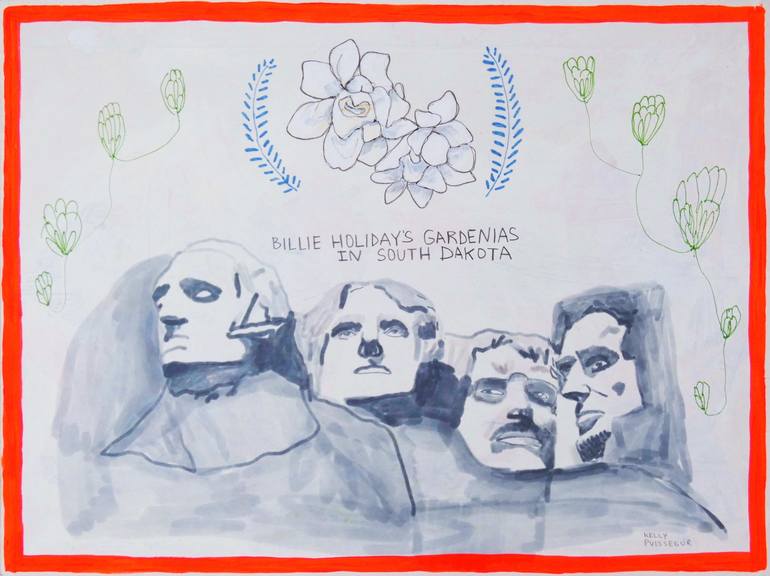 BILLIE HOLIDAY'S GARDENIAS
IN SOUTH DAKOTA
KELLY
PUISSEGUR